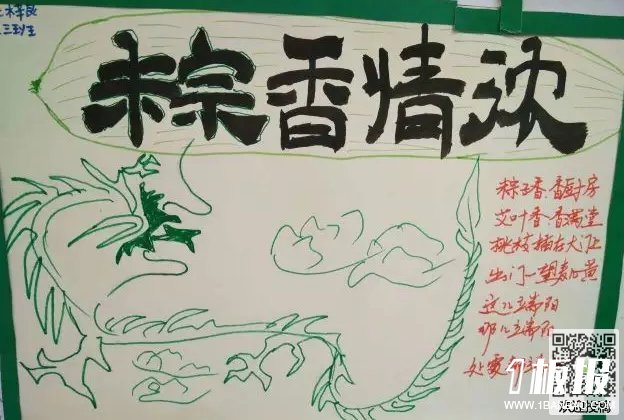 三班
粽香情浓
粽子香香厨房
艾叶香香满堂
桃枝插在大门上
出门一望麦儿黄
这儿端阳
那儿端阳
处处
1板报
WWW.1BANBAO.COM